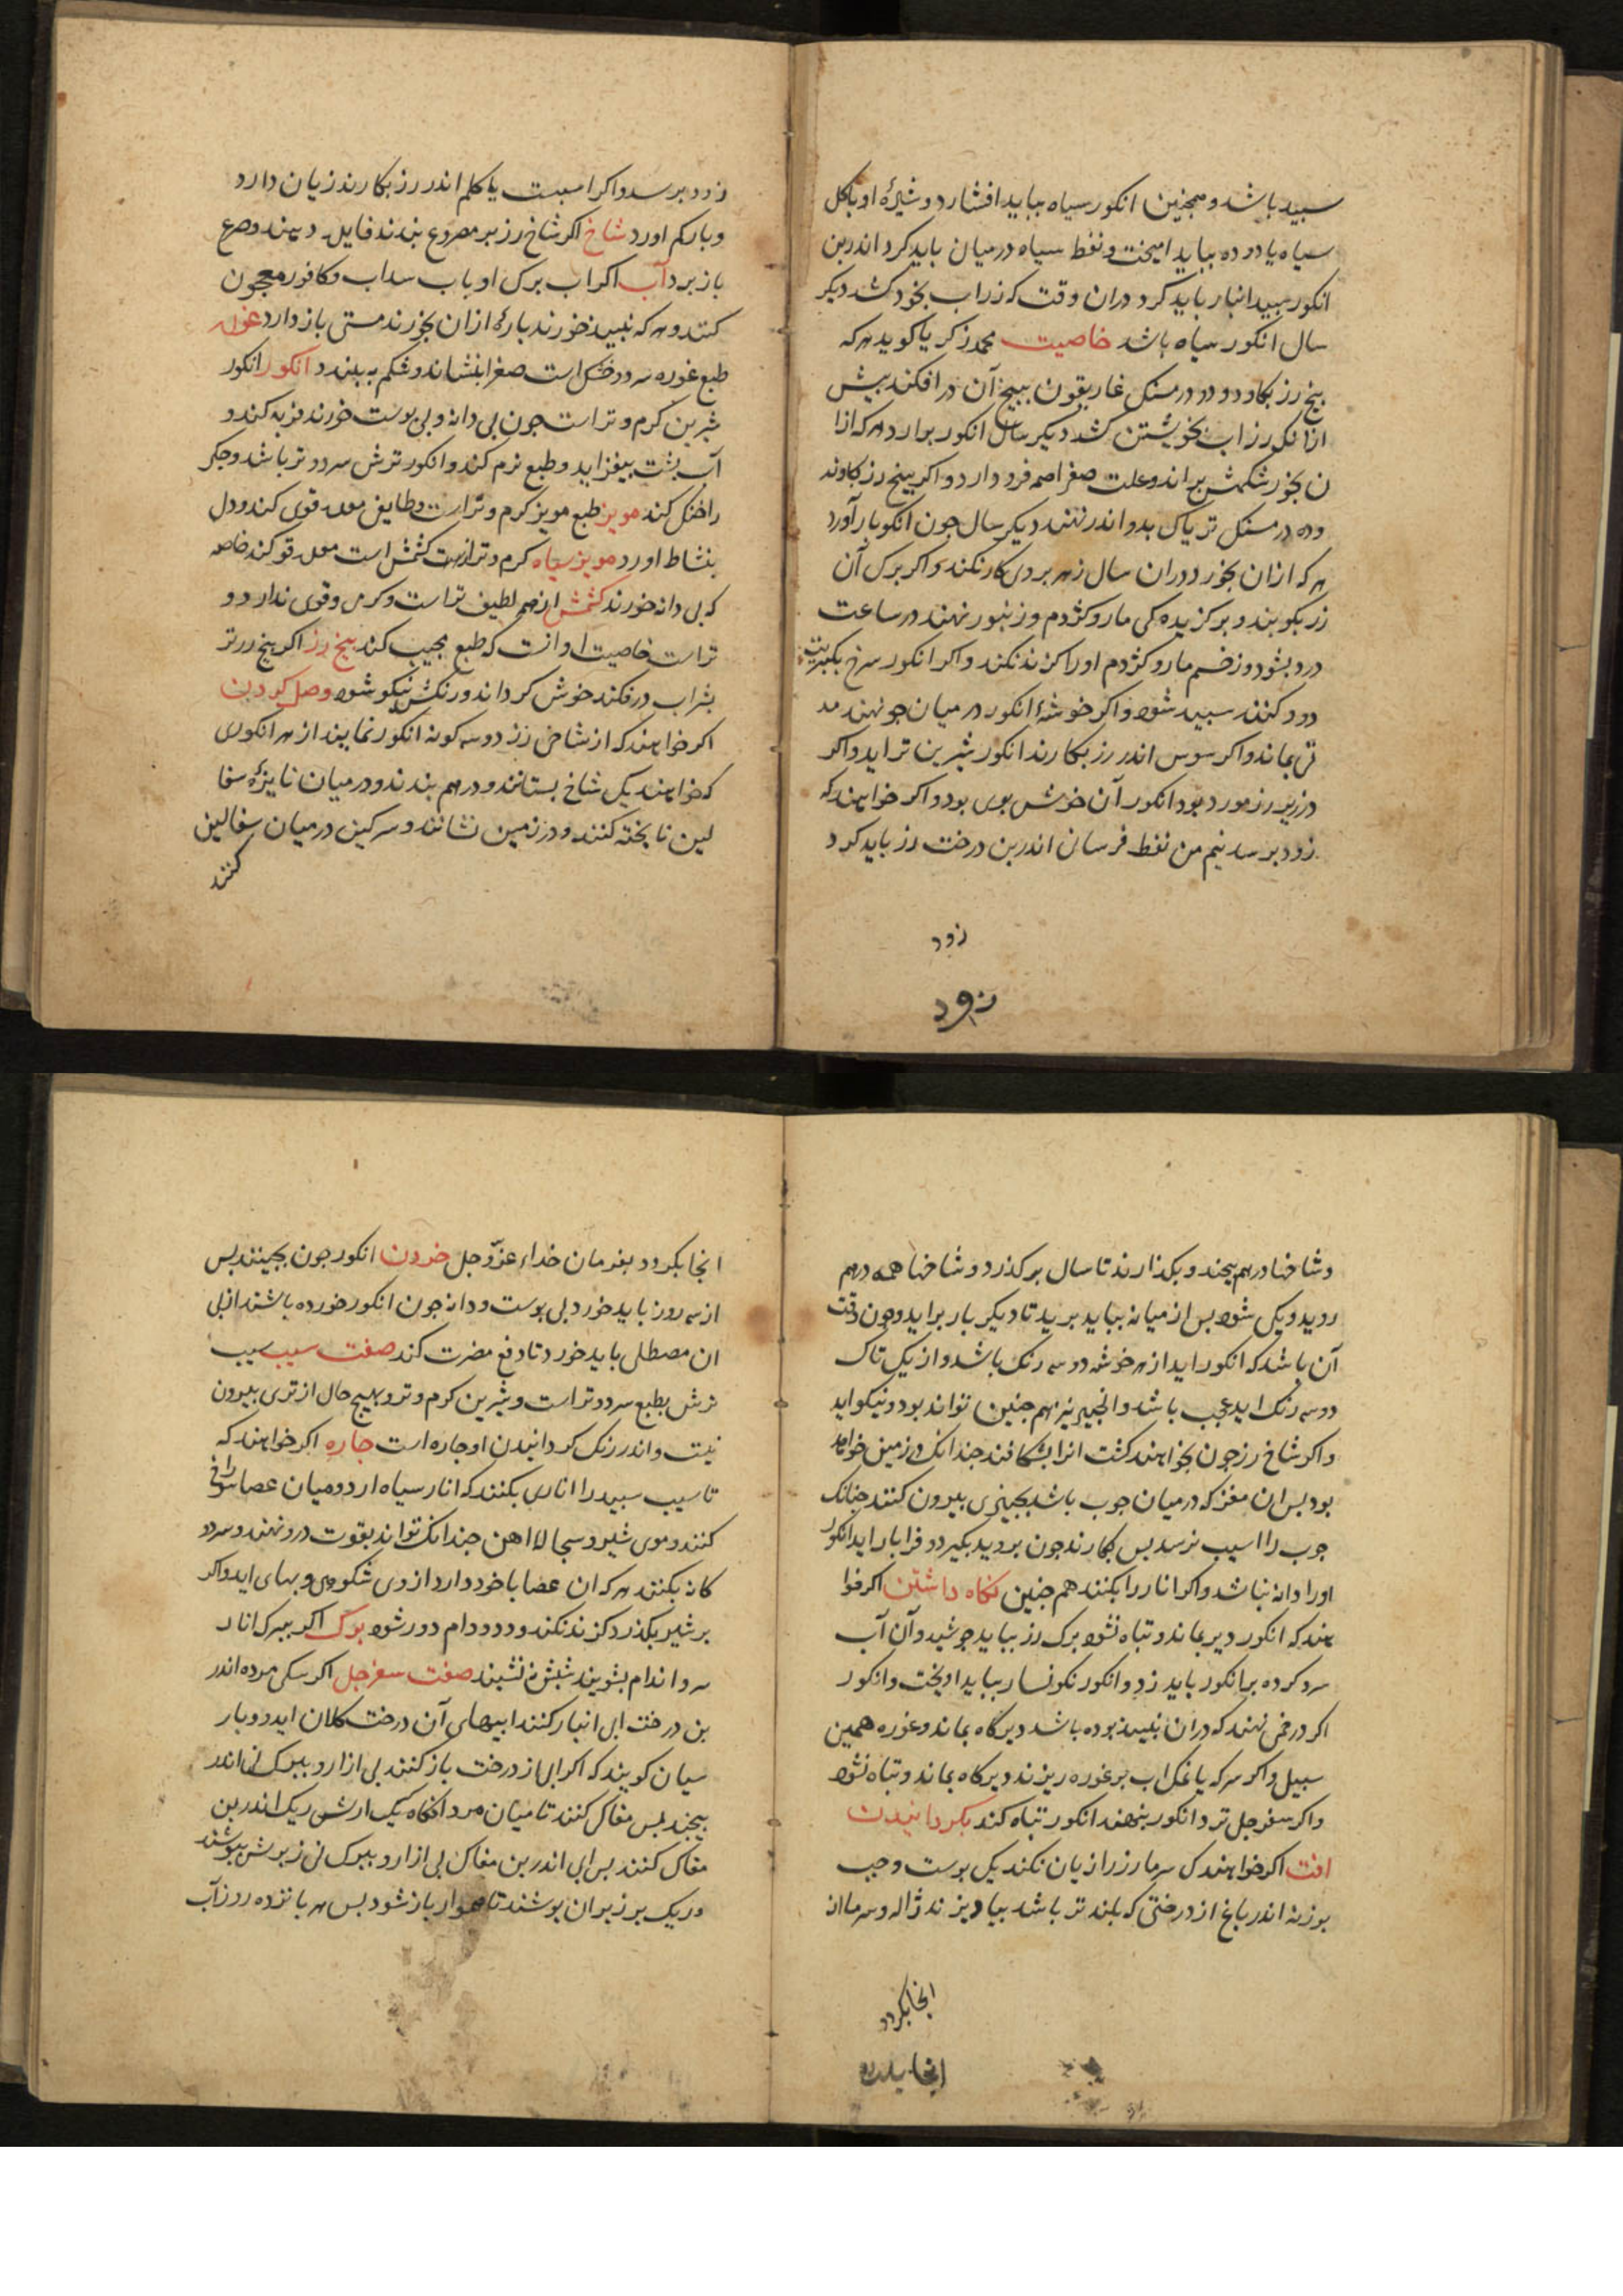 سبید باشد و همجنین انکور سیاه بباید افشارد و شیرهٔ او با کل
سیاه یا دوده بباید امیخت و نفط سیاه در میان باید کرد اندر بن
انکور سبید انبار باید کرد دران وقت که رز اب بخود کشد دیکر
سال انکور سیاه باشد خاصیت محمد زکریا کوید هر که
بیخ رز بکاود و دو درمسنک غاریقون ببیخ آن در افکند بیش
ازانک رز اب بخویشتن کشد دیکر سال انکور برارد هر که ازا
ن بخورد شکمش براند و علت صفرا همه فرود ارد و اکر بیخ رز بکاوند
و ده درمسنک تریاک بدو اندر نهند دیکر سال جون انکور بار آورد
هر که ازان بخورد دران سال زهر بر وی کار نکند و اکر برک آن
رز بکوبند و بر کزیده کی مار و کژدم و زنبور نهند در ساعت
درد بشود و زخم مار و کژدم اورا کزند نکند و اکر انکور سرخ بکبریت
دود کنند سبید شود و اکر خوشهٔ انکور در میان جو نهند مد
تی بماند و اکر سوس اندر رز بکارند انکور شیرین تر اید و اکر
در زیر رز مورد بود انکور آن خوش بوی بود و اکر خواهند که
زود برسد نیم من نفط فرسان اندر بن درخت رز باید کرد
زود
زود
زود برسد و اکر اسبست یا کلم اندر رز بکارند زیان دارد
و بار کم اورد شاخ اکر شاخ رز بر مصروع بندند فایده دهند و صرع
باز برد آب اکر اب برک او باب سداب و کافور معجون
کنند و هر که نبید خورند بارهٔ ازان بخورند مستی باز دارد غوره
طبع غوره سرد و خشک است صفرا بنشاند و شکم به بندد انکور انکور
شیرین کرم و تر است جون بی دانه و بی بوست خورند فربه کند و
آب بشت بیفزاید و طبع نرم کند و انکور ترش سرد و تر باشد و جکر
را خنک کند مویز طبع مویز کرم و تر است و طایفی معده قوی کند و دل
بنشاط اورد مویز سیاه کرم و تر از کشمش است معده قوی کند خاصه
که بی دانه خورند کشمش از همه لطیف تر است و کرمی وقوی ندارد و
تر است خاصیت او انست که طبع مجیب کند بیخ رز اکر بیخ رز تر
بشراب درفکند خوش کرداند و رنکش نیکو شود وصل کردن
اکر خواهند که از شاخی رز دو سه کونه انکور نمایند از هر انکوری
که خواهند یک شاخ بستانند و درهم بندند و در میان نایزهٔ سفا
لین نابخته کنند و در زمین نشانند و سرکین در میان سفالین
کنند
و شاخها درهم بیجند و بکذارند تا سال برکذرد و شاخها همه درهم
روید و یکی شود بس از میانه بباید برید تا دیکر بار براید و جون وقت
آن باشد که انکور اید از هر خوشه دو سه رنک باشد و از یک تاک
دو سه رنک اید عجب باشد و انجیر نیز هم جنین تواند بود و نیکو اید
و اکر شاخ رز جون بخواهند کشت انرا بشکافند جندانک در زمین خواهد
بود بس ان مغز که در میان جوب باشد بجیزی بیرون کنند جنانک
جوب را اسیب نرسد بس بکارند جون بروید بکیرد و فرا بار اید انکور
اورا دانه نباشد و اکر انار را بکنند هم جنین نکاه داشتن اکر خوا
هند که انکور دیر بماند و تباه نشود برک رز بباید جوشید و آن آب
سرد کرده بر انکور باید زد و انکور نکونسار بباید اویخت و انکور
اکر در خمی نهند که دران نبید بوده باشد دیرکاه بماند و غوره همین
سبیل و اکر سرکه یا نمک اب بر غوره ریزند دیرکاه بماند و تباه نشود
و اکر سفرجل تر در انکور بنهند انکور تباه کند بکردانیدن
افت اکر خواهند کی سرما رز را زیان نکند یکی بوست وجب
بوزنه اندر باغ از درختی که بلند تر باشد بیاویزند ژاله و سرما از
انجا بکردد
انجا بکردد
انجا بکردد بفرمان خدای عزّ و جل خردن انکور جون بجینند بس
از سه روز باید خورد بی بوست و دانه جون انکور خورده باشند از بی
ان مصطکی باید خورد تا دفع مضرت کند صفت سیب سیب
ترش بطبع سرد و تر است و شیرین کرم و تر و بهیچ حال از تری بیرون
نیست و اندر رنک کردانیدن او جاره است جاره اکر خواهند که
تا سیب سبید را اناری بکنند که انار سیاه ارد و میان عصا سوراخ
کنند و موی شیر و سجالهٔ اهن جندانک تواند بقوت درو نهند و سر دو
کانه بکنند هر که ان عصا با خود دارد از وی شکوهی و بهای اید و اکر
بر شیر بکذرد کزند نکند و دد و دام دور شود برک اکر ببرک انار
سر و اندام بشویند شبش نه نشیند صفت سفرجل اکر سکی مرده اندر
بن درخت ابی انبار کنند ابیهای آن درخت کلان اید و دو بار
سیان کویند که اکر ابی از درخت باز کنند بی ازار و ببرک نی اندر
بیجند بس مغاکی کنند تا میان مرد انکاه یک ارش ریک اندر بن
مغاک کنند بس ابی اندر بن مغاک بی ازار و ببرک نی زبرش ببوشند
و ریک بر زبر ان بوشند تا هموار باز شود بس هر بانزده روز آب